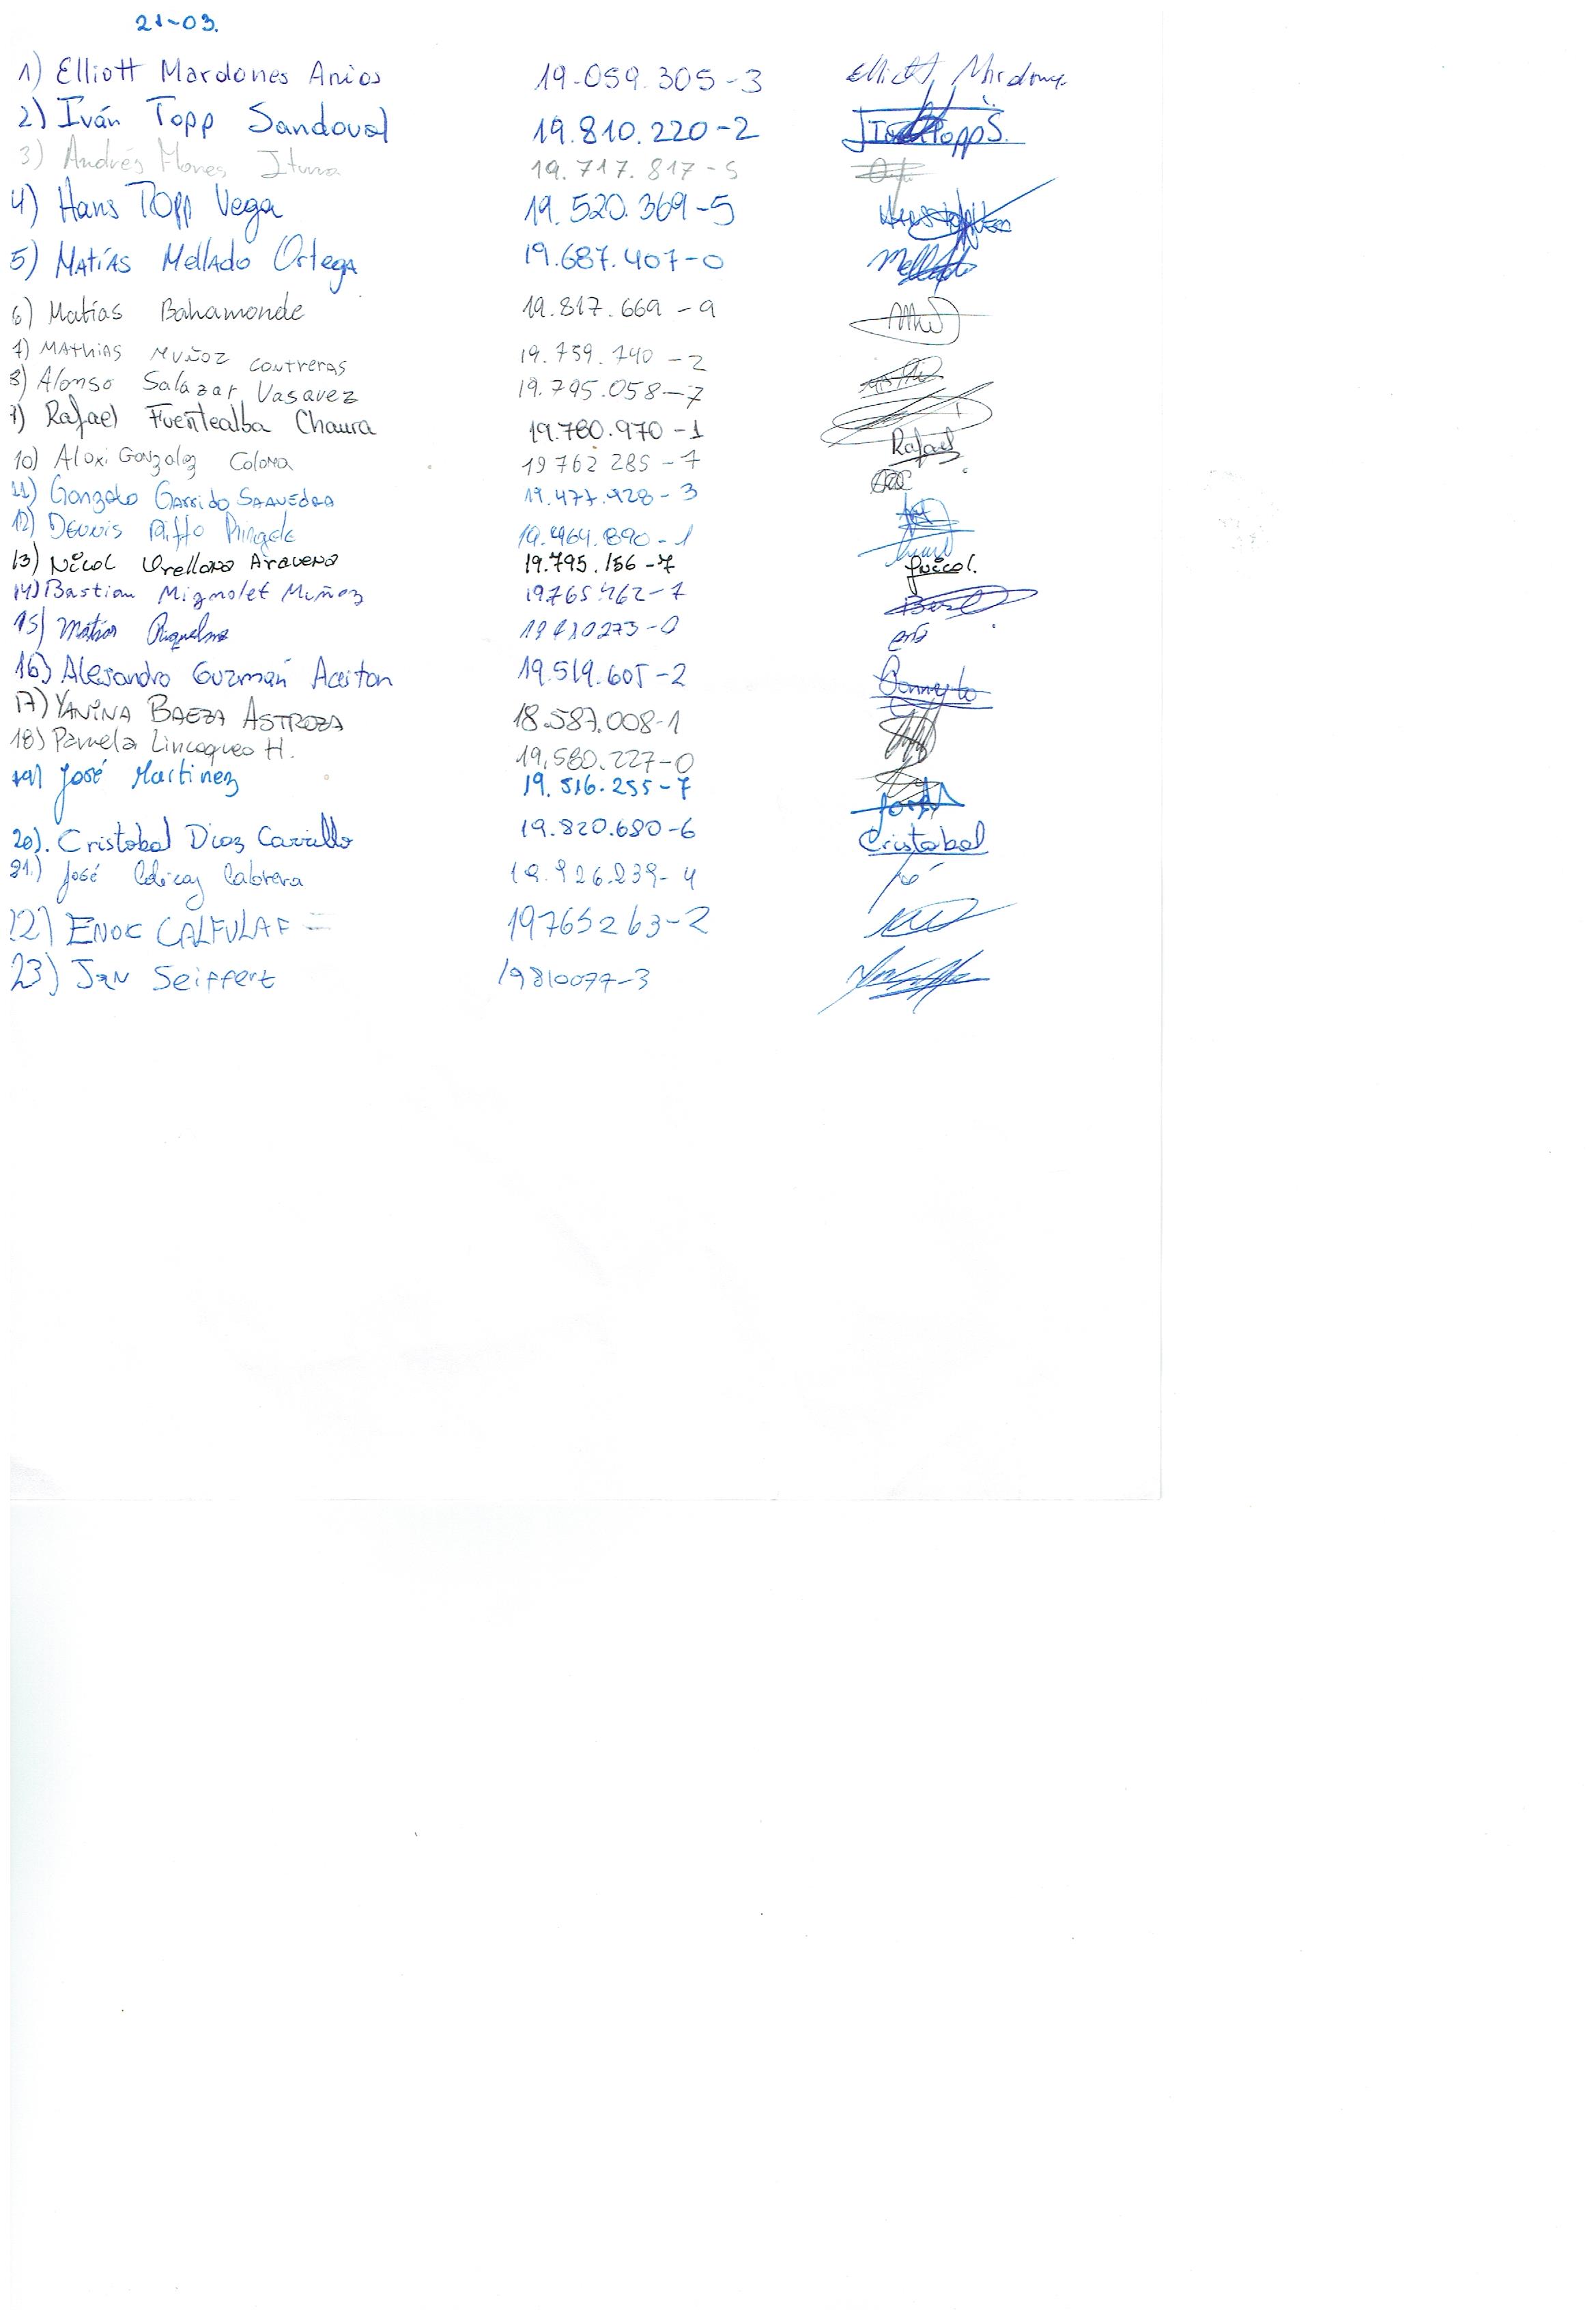 21-03.
1) Elliott Mardones Arios 19.059.305-3 Elliott Mardones
2) Iván Topp Sandoval 19.810.220-2 Iván Topp S.
3) Andrés Flores 19.717.817-5
4) Hans Topp Vega 19.520.369-5
5) Matías Mellado Ortega 19.687.407-0 Mellado
6) Matías Bahamonde 19.817.669-9
7) Mathias Muñoz Contreras 19.759.740-2
8) Alonso Salazar Vasquez 19.795.058-7
9) Rafael Fuentealba Chaura 19.760.970-1 Rafael
10) Alexi Gonzalez Coloma 19762285-7
11) Gonzalo Garrido Saavedra 19.477.928-3
12) Dennis Riffo 19.464.890-1
13) Nicol Orellana Aravena 19.795.156-7 Nicol.
14) Bastian Mignolet Muñoz 19765462-7
15) Matías Riquelme
16) Alejandro Guzmán 19.519.605-2
17) Yanina Baeza Astroza 18.587.008-1
18) Pamela Lincoqueo H. 19.580.227-0
19) José Martinez 19.516.255-7
20). Cristobal Diaz Carrillo 19.820.680-6 Cristobal
21.) José Cabrera 19.926.239-4
22) Enoc Calfulaf 19765263-2
23) Jan Seiffert 19810077-3